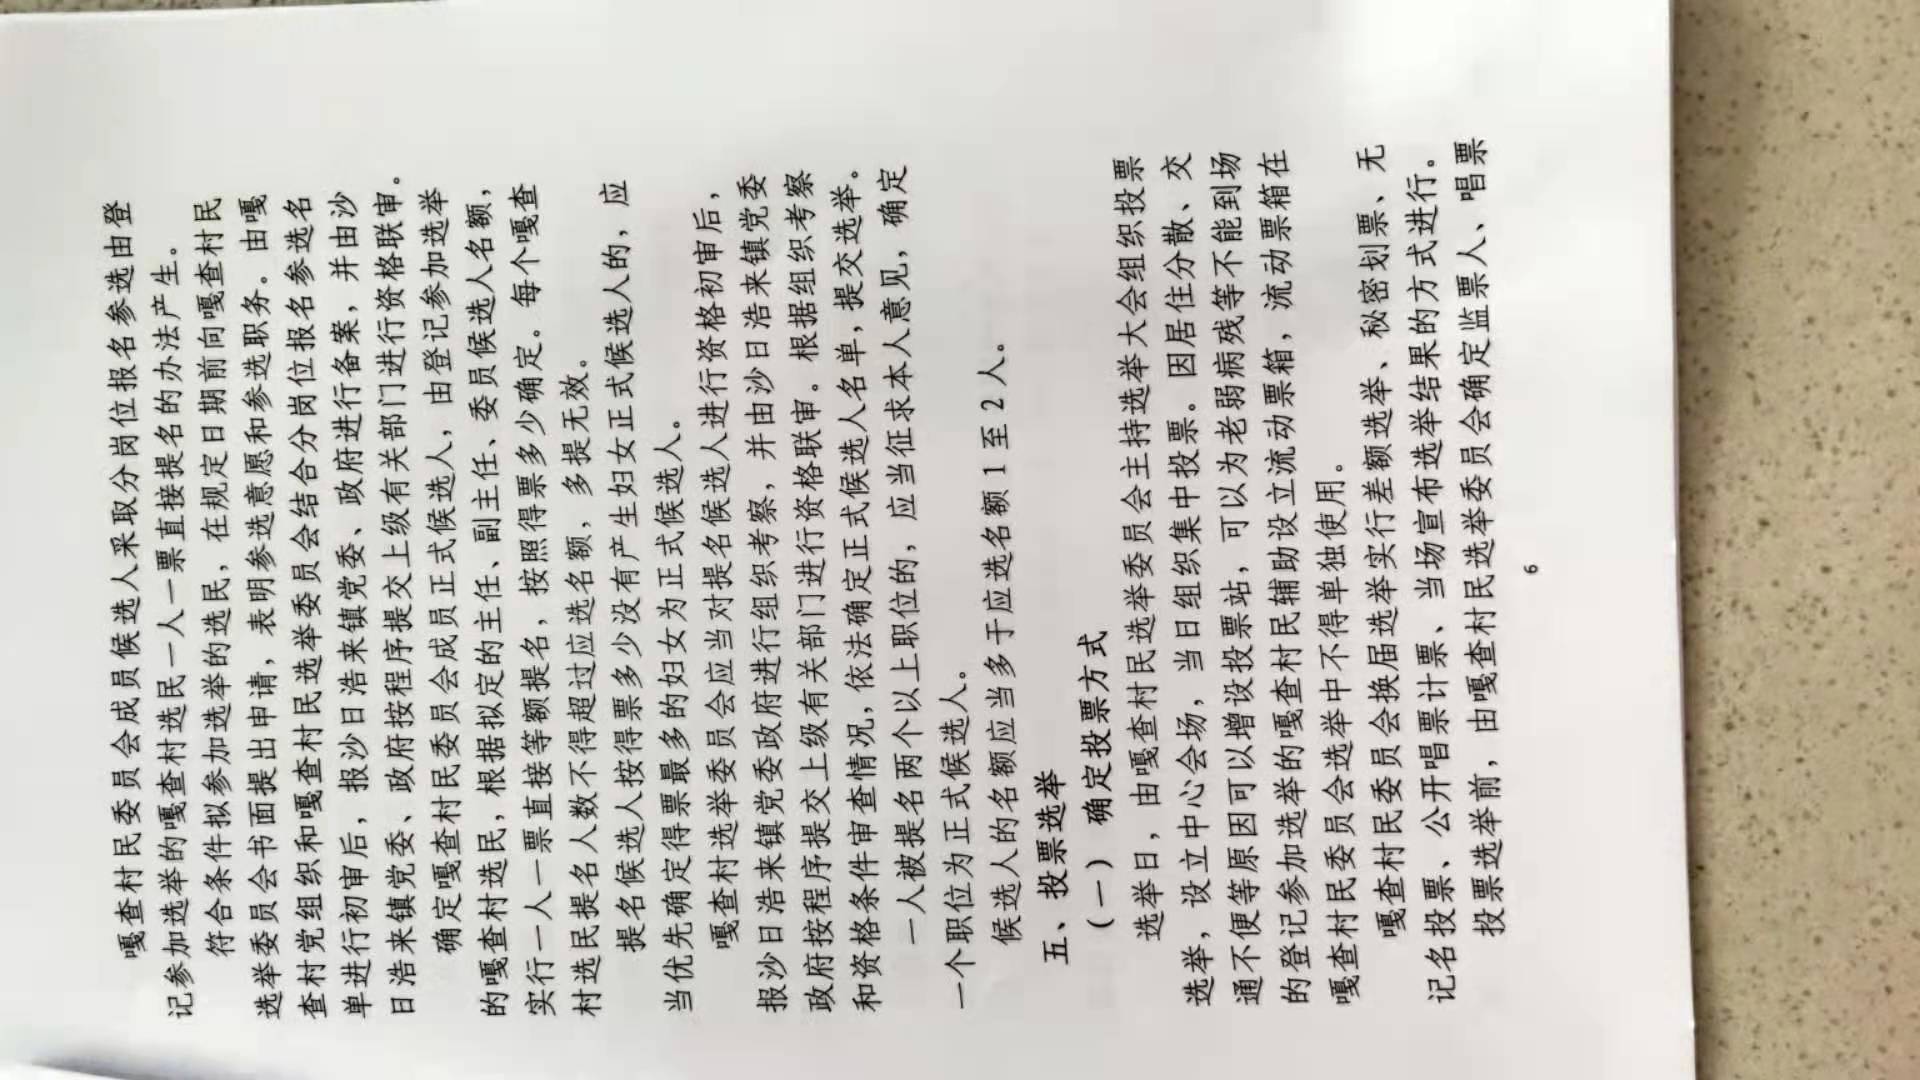 嘎查村民委员会成员候选人采取分岗位报名参选由登
记参加选举的嘎查村选民一人一票直接提名的办法产生。
符合条件拟参加选举的选民，在规定日期前向嘎查村民
选举委员会书面提出申请，表明参选意愿和参选职务。由嘎
查村党组织和嘎查村民选举委员会结合分岗位报名参选名
单进行初审后，报沙日浩来镇党委、政府进行备案，并由沙
日浩来镇党委、政府按程序提交上级有关部门进行资格联审。
确定嘎查村民委员会成员正式候选人，由登记参加选举
的嘎查村选民，根据拟定的主任、副主任、委员候选人名额，
实行一人一票直接等额提名，按照得票多少确定。每个嘎查
村选民提名人数不得超过应选名额，多提无效。
提名候选人按得票多少没有产生妇女正式候选人的，应
当优先确定得票最多的妇女为正式候选人。
嘎查村选举委员会应当对提名候选人进行资格初审后，
报沙日浩来镇党委政府进行组织考察，并由沙日浩来镇党委
政府按程序提交上级有关部门进行资格联审。根据组织考察
和资格条件审查情况，依法确定正式候选人名单，提交选举。
一人被提名两个以上职位的，应当征求本人意见，确定
一个职位为正式候选人。
候选人的名额应当多于应选名额1至2人。
五、投票选举
（一）确定投票方式
选举日，由嘎查村民选举委员会主持选举大会组织投票
选举，设立中心会场，当日组织集中投票。因居住分散、交
通不便等原因可以增设投票站，可以为老弱病残等不能到场
的登记参加选举的嘎查村民辅助设立流动票箱，流动票箱在
嘎查村民委员会选举中不得单独使用。
嘎查村民委员会换届选举实行差额选举、秘密划票、无
记名投票、公开唱票计票、当场宣布选举结果的方式进行。
投票选举前，由嘎查村民选举委员会确定监票人、唱票
6